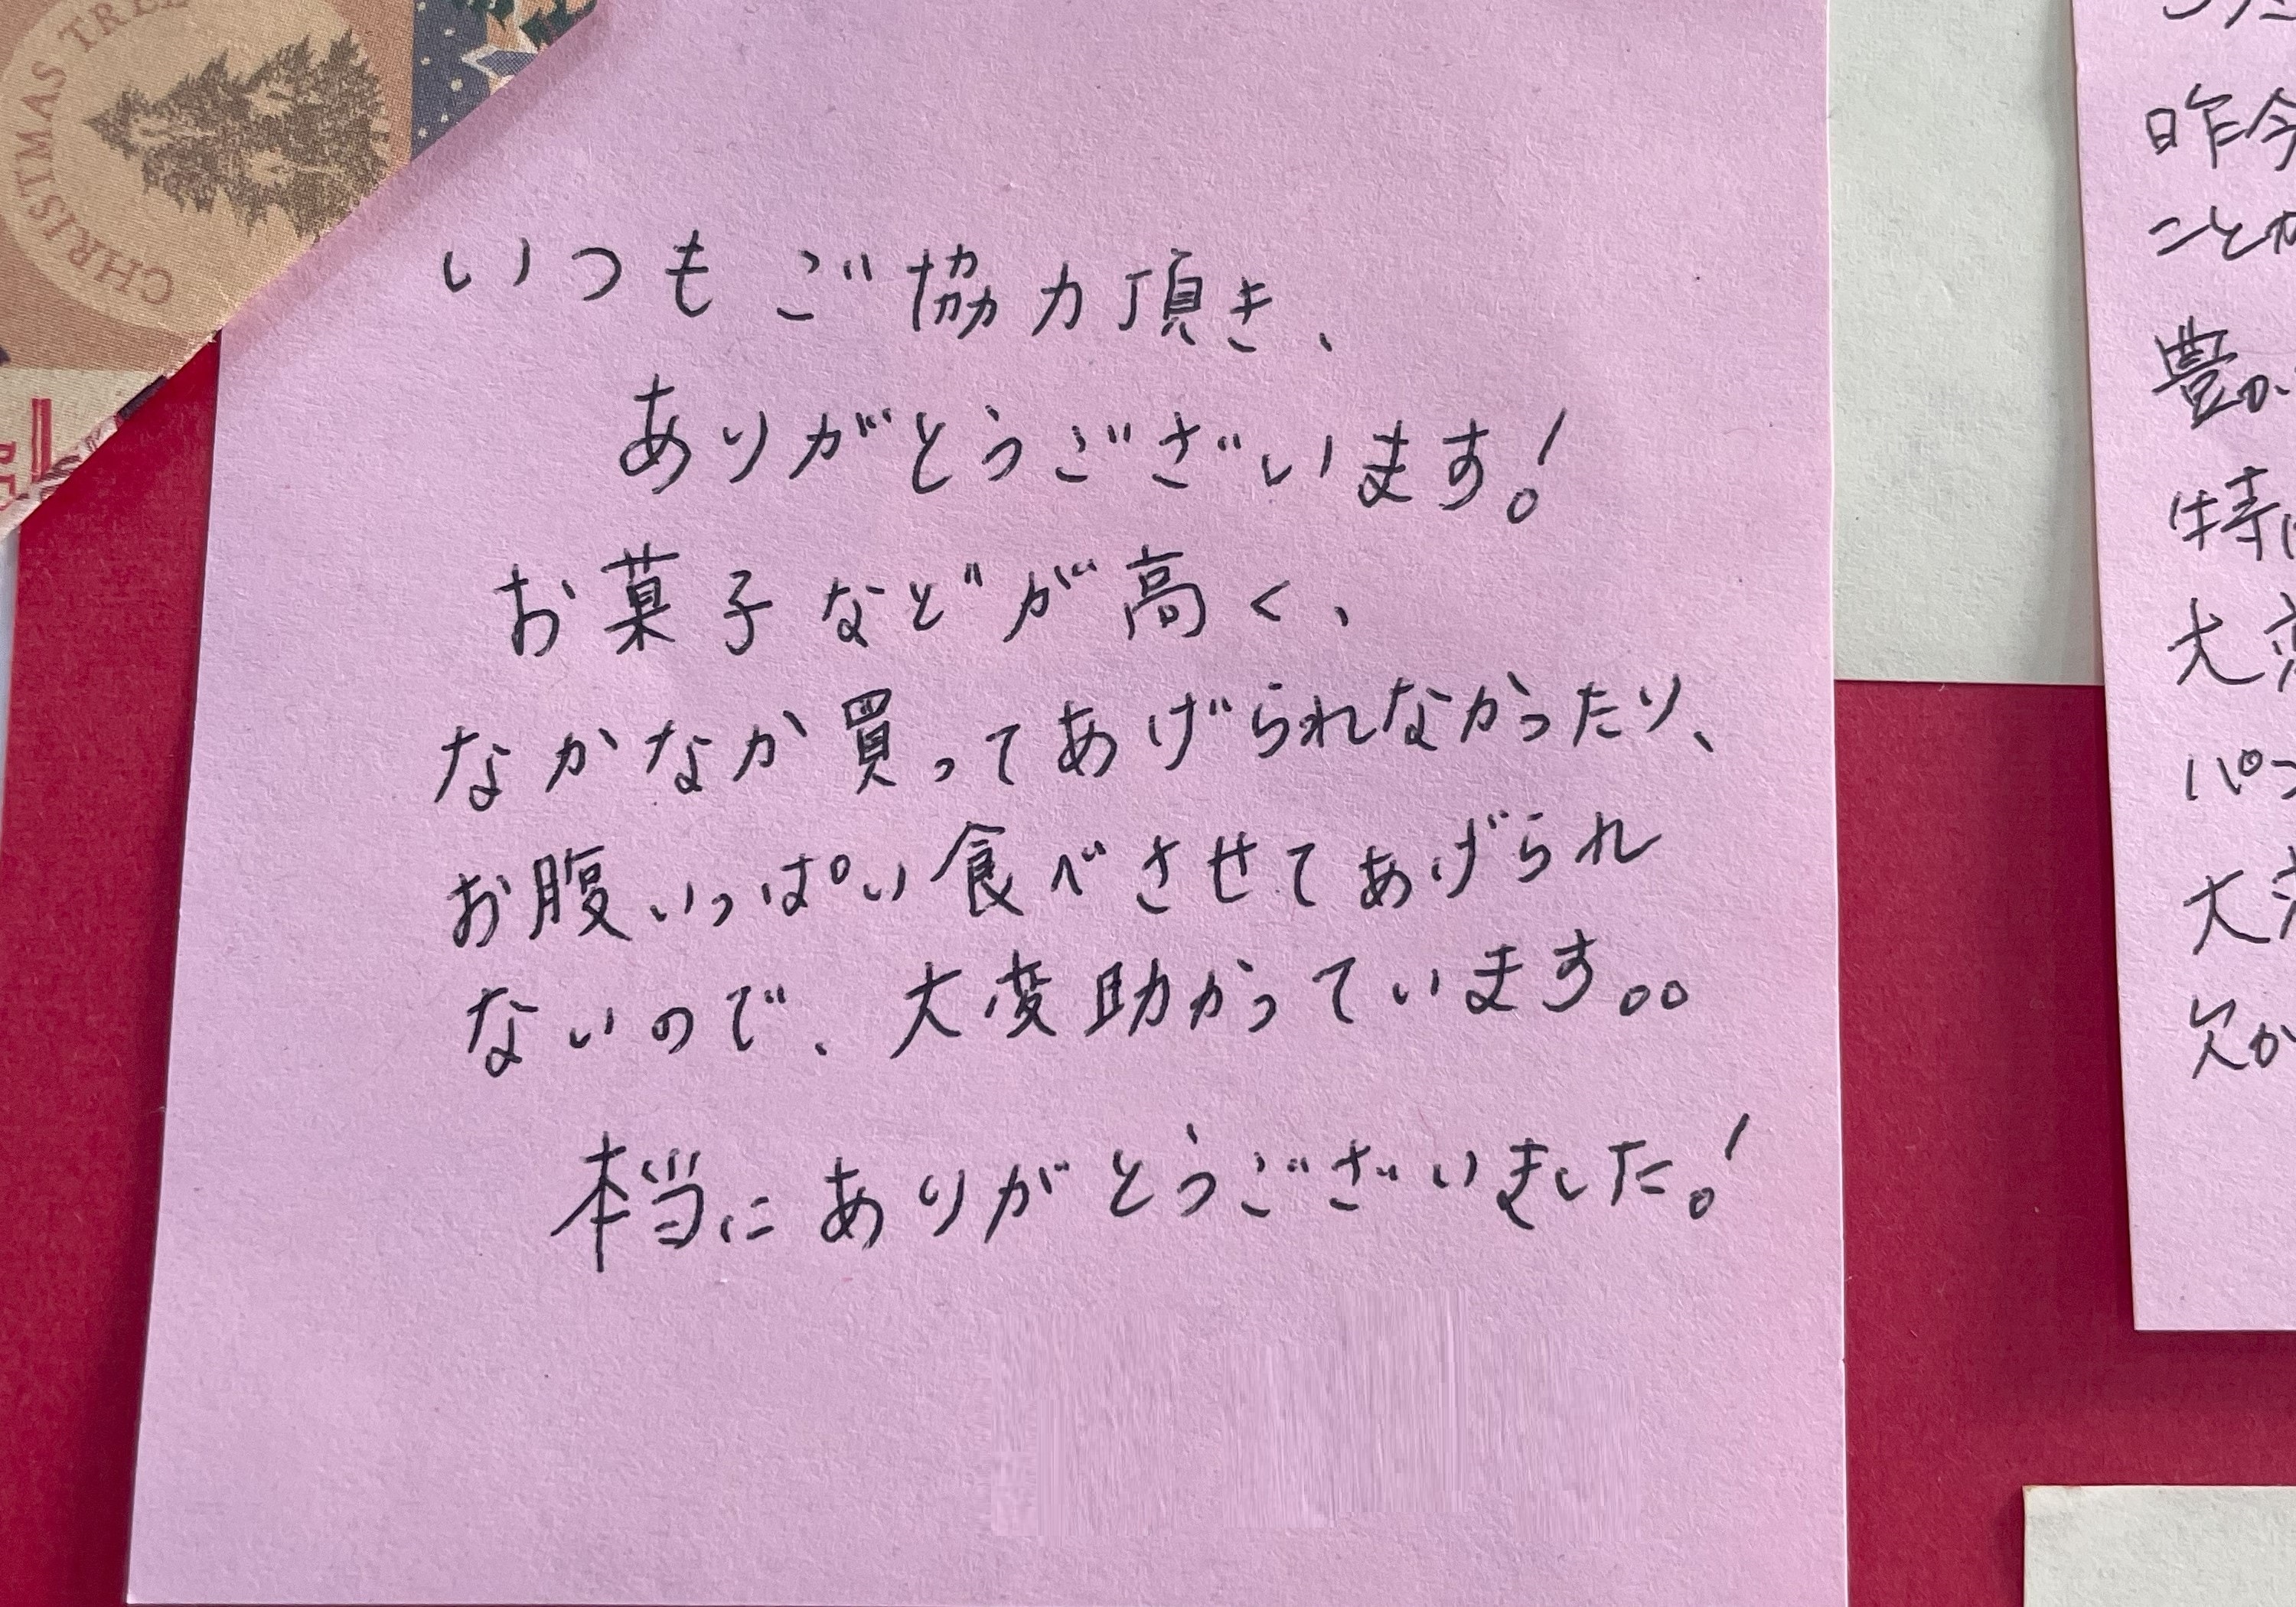 CHRISTMAS TREE
いつもご協力頂き、
ありがとうございます!
お菓子などが高く、
なかなか買ってあげられなかったり、
お腹いっぱい食べさせてあげられ
ないので、大変助かっています。。
本当にありがとうございました!
昨今
ことが
豊か
特に
大変
パン
大
欠か